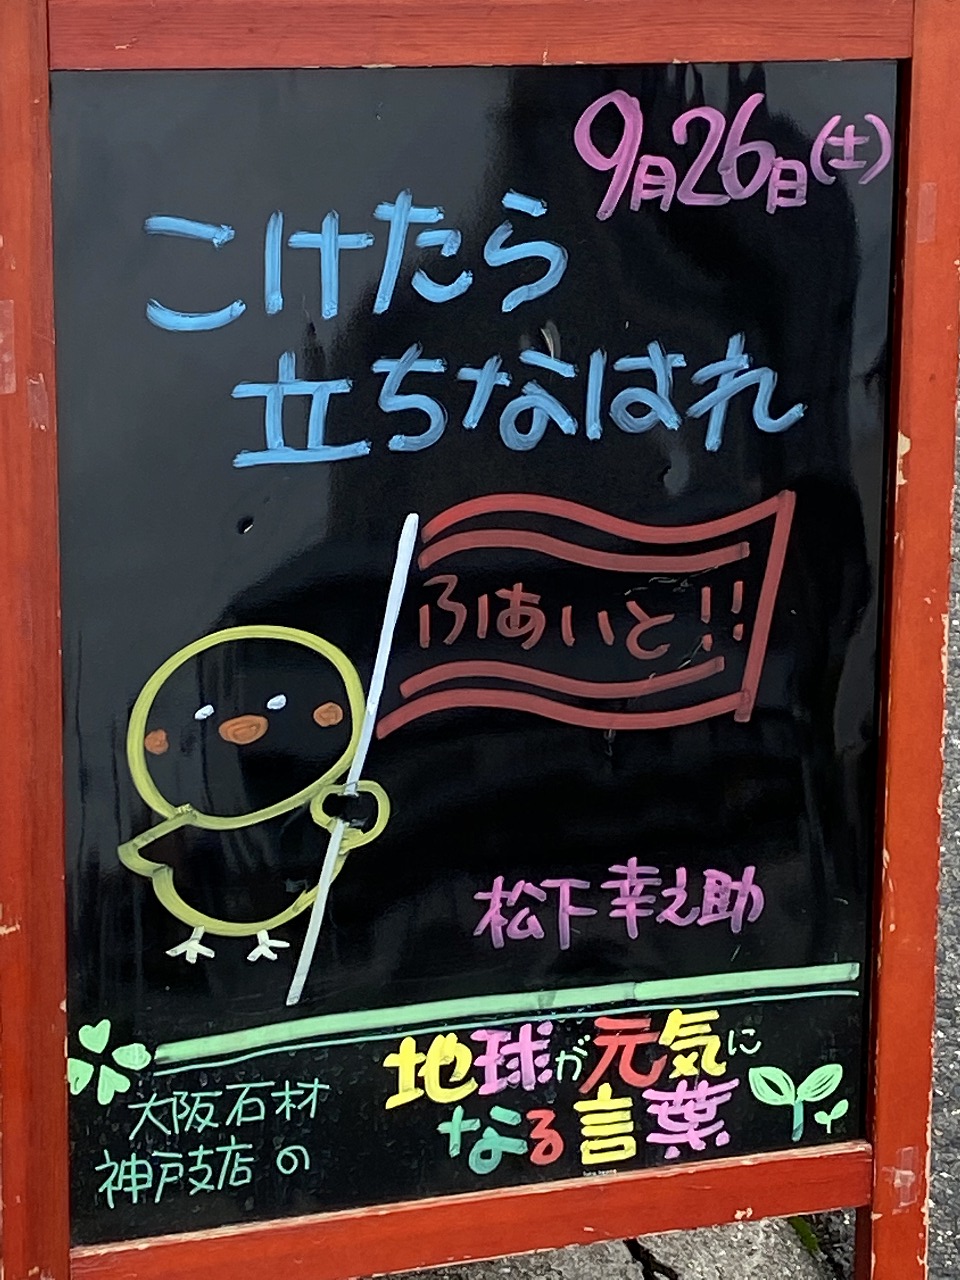 9月26日(土)
こけたら
立ちなはれ
ふぁいと!!
松下幸之助
大阪石材
神戸支店の
地球が元気に
なる言葉